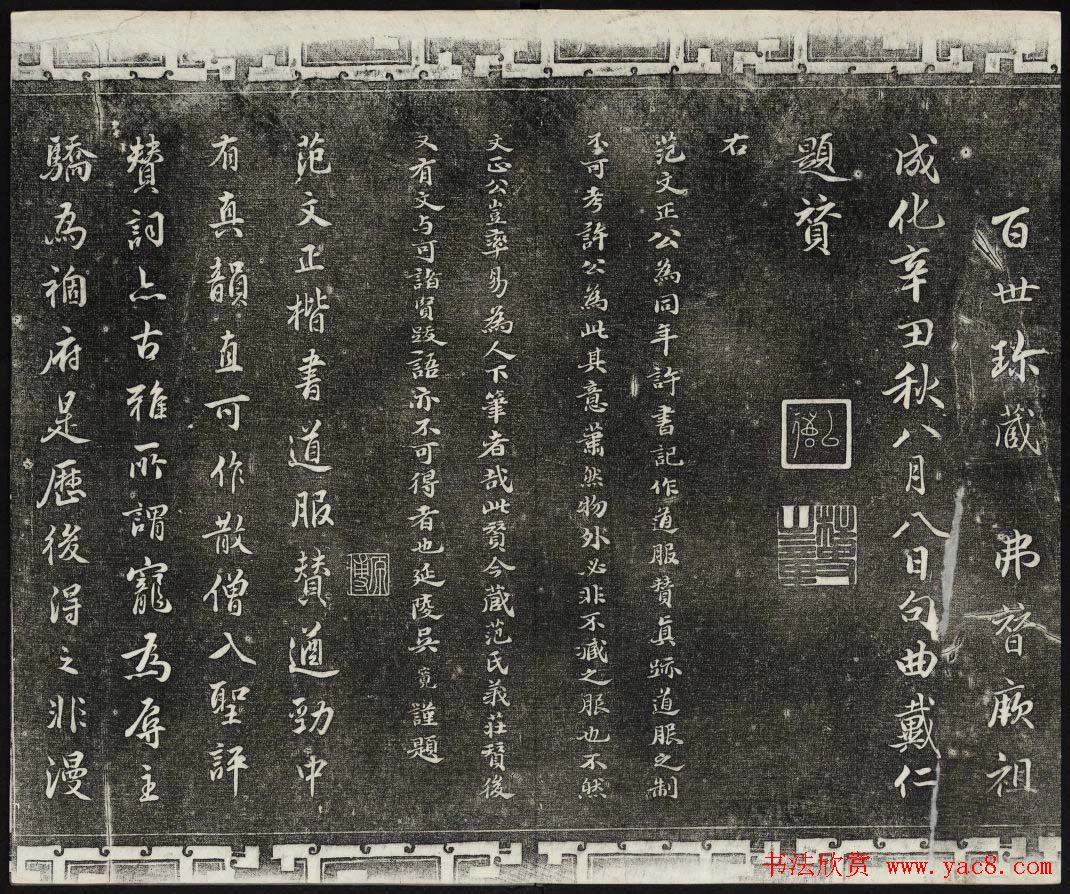 百世珎藏弗替厥祖
成化辛丑秋八月八日句曲戴仁
題贊
右
范文正公為同年許書記作道服贊真跡道服之制
不可考許公為此其意蕭然物外必非不臧之服也不然
文正公豈率易為人下筆者哉此贊今藏范氏義莊贊後
又有文与可諸賢跋語亦不可得者也延陵吳寬謹題
范文正楷書道服贊遒勁中
有真韻直可作散僧入聖評
贊詞亦古雅所謂寵為辱主
驕為禍府是歷後得之非漫
书法欣赏 www.yac8.com